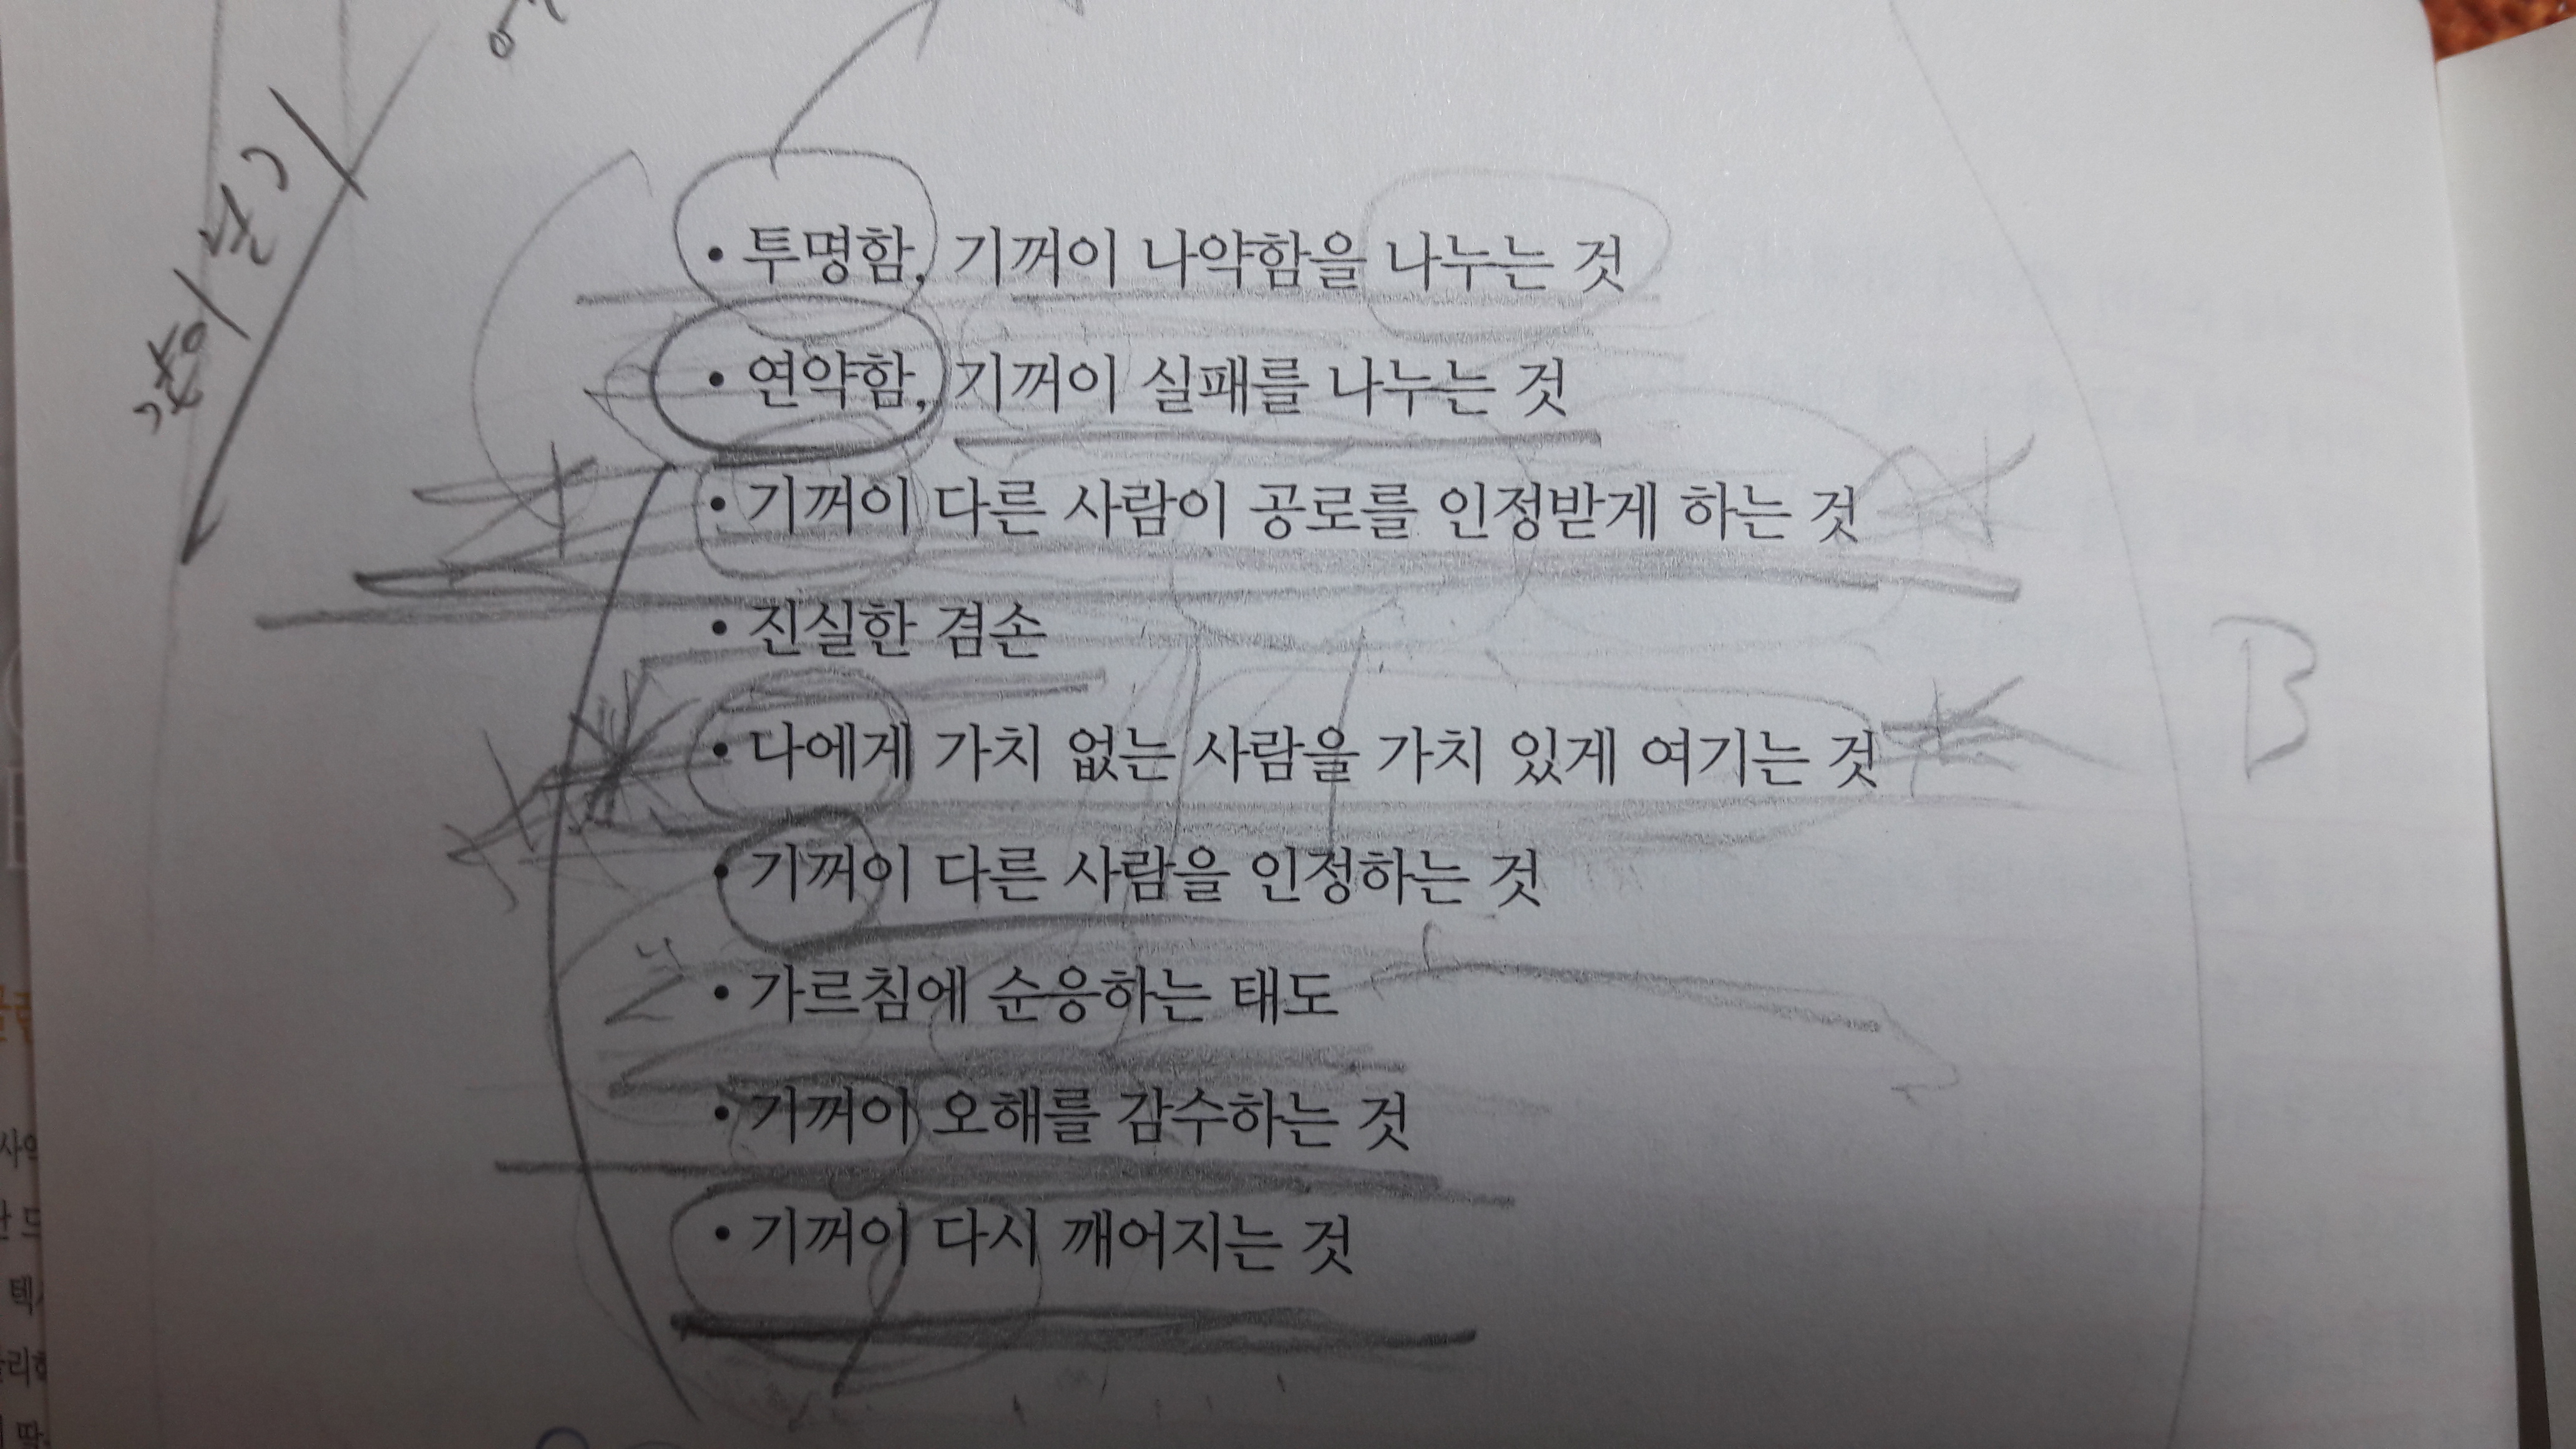 • 투명함, 기꺼이 나약함을 나누는 것
• 연약함, 기꺼이 실패를 나누는 것
• 기꺼이 다른 사람이 공로를 인정받게 하는 것
• 진실한 겸손
• 나에게 가치 없는 사람을 가치 있게 여기는 것
B
• 기꺼이 다른 사람을 인정하는 것
• 가르침에 순응하는 태도
• 기꺼이 오해를 감수하는 것
• 기꺼이 다시 깨어지는 것